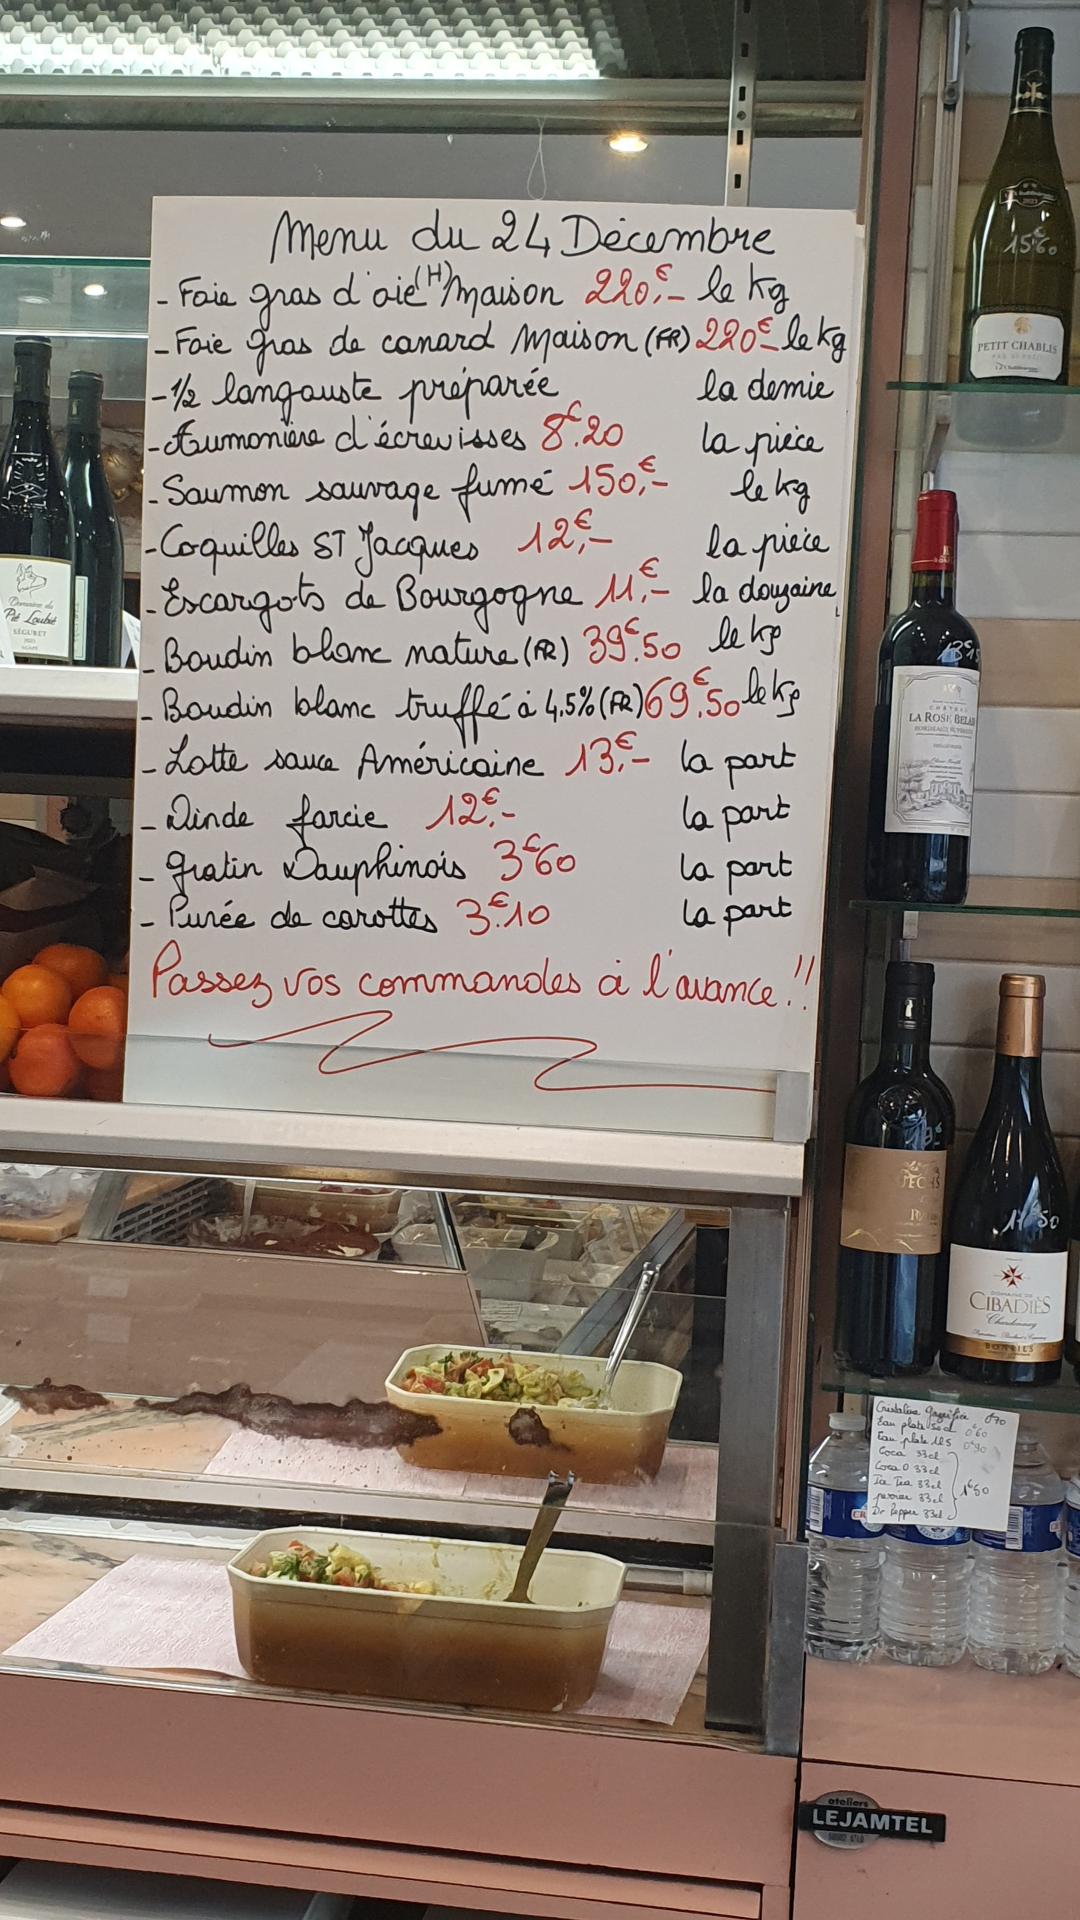 Menu du 24 Décembre
- Foie gras d'oie (H) Maison 220,€- le kg
- Foie gras de canard Maison (FR) 220€- le kg
- 1/2 langouste préparée la demie
- Aumonière d'écrevisses 8€.20 la pièce
- Saumon sauvage fumé 150,€- le kg
- Coquilles ST Jacques 12,€- la pièce
- Escargots de Bourgogne 11,€- la douzaine
- Boudin blanc nature (FR) 39€.50 le kg
- Boudin blanc truffé à 4,5% (FR) 69€.50 le kg
- Lotte sauce Américaine 13,€- la part
- Dinde farcie 12€.- la part
- Gratin Dauphinois 3€60 la part
- Purée de carottes 3.€10 la part
Passez vos commandes à l'avance !!
15€60
PETIT CHABLIS
Domaine du
Pit Loubié
SÉGURET
LA ROSE BELAIR
19€
DOMAINE DE
CIBADIÈS
Chardonnay
BONFILS
Cristaline gazéifiée 0€70
Eau plate 50cl 0€60
Eau plate 1L5 0€90
Coca 33cl
Coca 0 33cl
Ice Tea 33cl
perrier 33cl
Dr Pepper 33cl
1€50
ateliers
LEJAMTEL